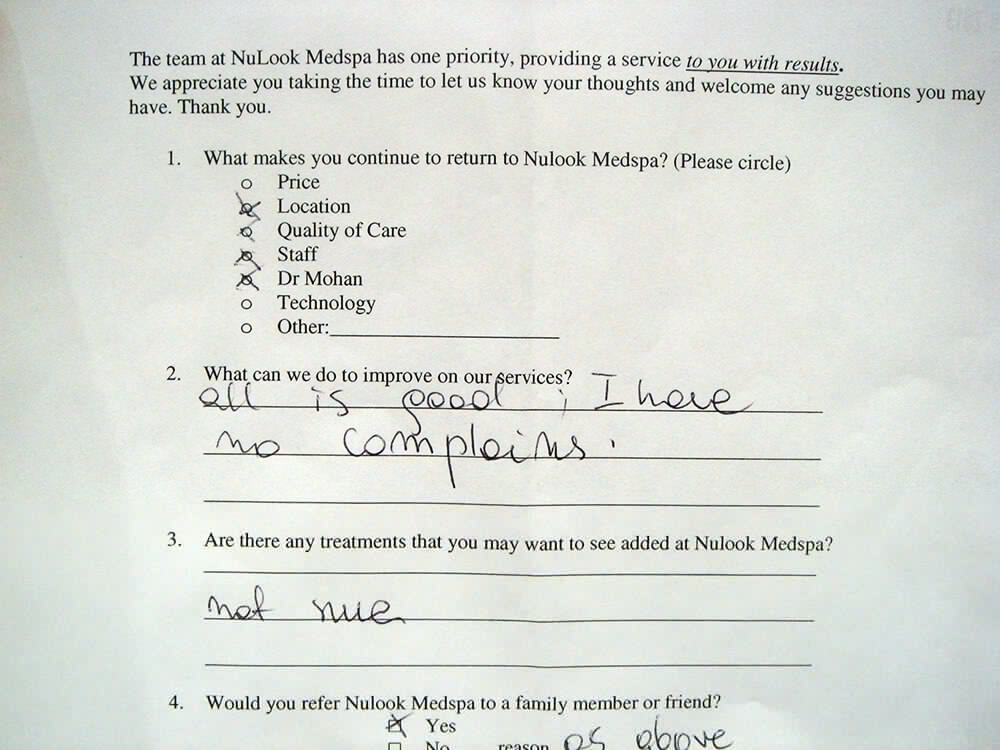 The team at NuLook Medspa has one priority, providing a service to you with results.
We appreciate you taking the time to let us know your thoughts and welcome any suggestions you may
have. Thank you.
1. What makes you continue to return to Nulook Medspa? (Please circle)
Price
Location
Quality of Care
Staff
Dr Mohan
Technology
Other:
2. What can we do to improve on our services?
all is good ; I have
no complains.
3. Are there any treatments that you may want to see added at Nulook Medspa?
not
4. Would you refer Nulook Medspa to a family member or friend?
Yes
No reason as above